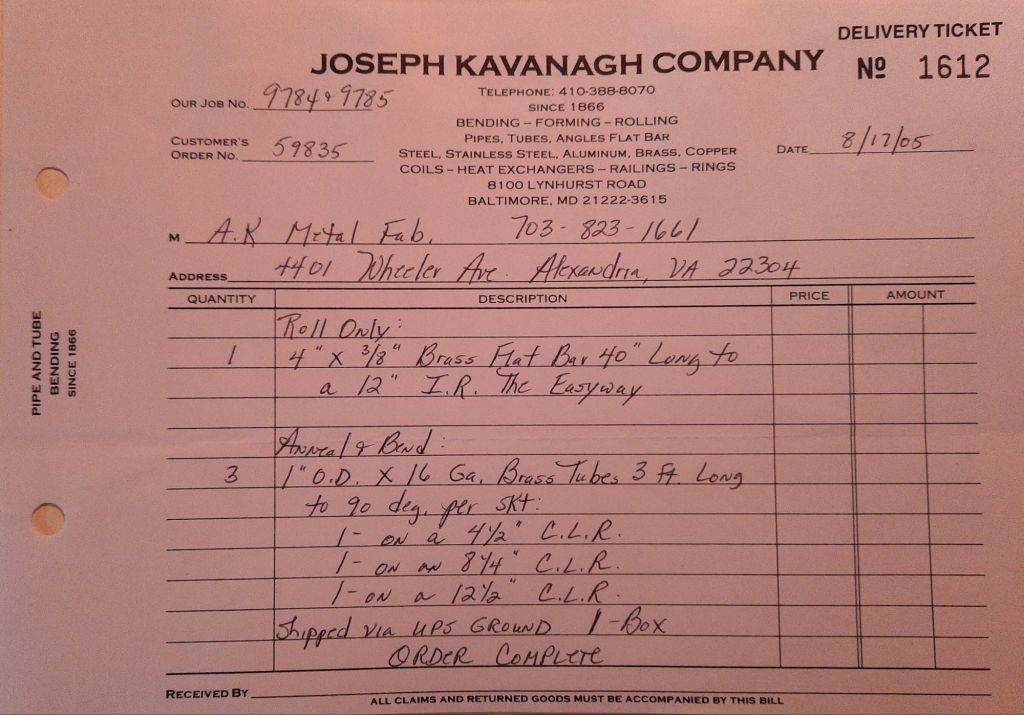 DELIVERY TICKET
JOSEPH KAVANAGH COMPANY
Nº 1612
TELEPHONE: 410-388-8070
OUR JOB NO. 9784 & 9785
SINCE 1866
BENDING – FORMING – ROLLING
PIPES, TUBES, ANGLES FLAT BAR
CUSTOMER'S
ORDER NO. 59835
STEEL, STAINLESS STEEL, ALUMINUM, BRASS, COPPER
DATE 8/17/05
COILS – HEAT EXCHANGERS – RAILINGS – RINGS
8100 LYNHURST ROAD
BALTIMORE, MD 21222-3615
M A.K Metal Fab. 703-823-1661
ADDRESS 4401 Wheeler Ave. Alexandria, VA 22304
QUANTITY DESCRIPTION PRICE AMOUNT
Roll Only:
1 4" X 3/8" Brass Flat Bar 40" Long to
a 12" I.R. The Easyway
Anneal & Bend:
3 1" O.D. X 16 Ga. Brass Tubes 3 ft. Long
to 90 deg. per skt:
1- on a 4 1/2" C.L.R.
1- on an 8 1/4" C.L.R.
1- on a 12 1/2" C.L.R.
Shipped via UPS GROUND 1-Box
ORDER COMPLETE
RECEIVED BY
ALL CLAIMS AND RETURNED GOODS MUST BE ACCOMPANIED BY THIS BILL
PIPE AND TUBE
BENDING
SINCE 1866